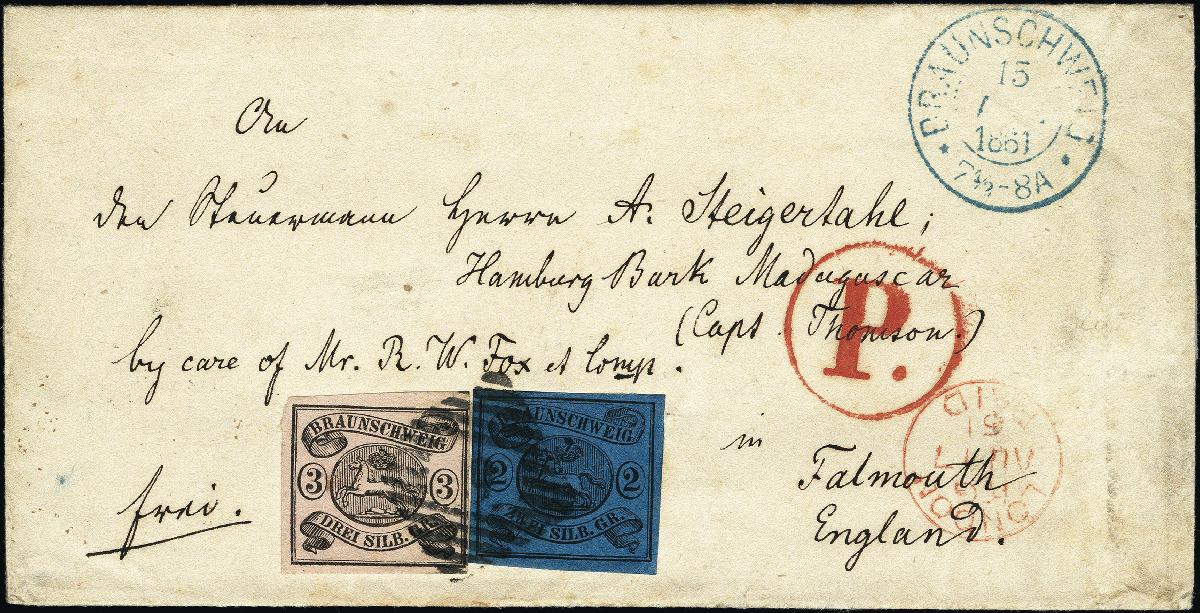 BRAUNSCHWEIG
15
1861
7½-8A
An
den Steuermann Herrn A. Steigertahl;
Hamburg Bark Madagascar
(Capt. Thomson.)
by care of Mr. R. W. Fox et Comp.
P.
in
Falmouth
England.
frei.
BRAUNSCHWEIG
3 3
DREI SILB. GR.
BRAUNSCHWEIG
2 2
ZWEI SILB. GR.
LONDON
AU 17
61
PAID